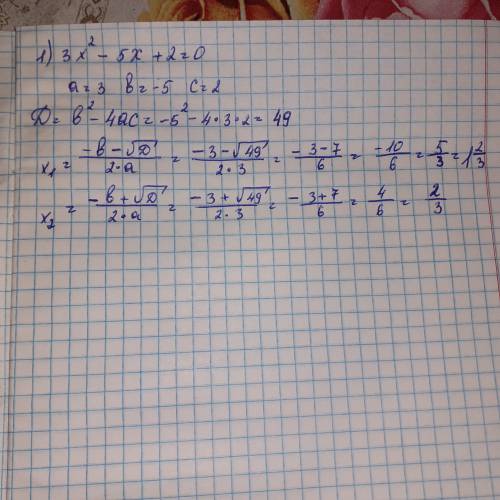 1) 3x² - 5x + 2 = 0
a = 3 в = -5 c = 2
Д = в² - 4ac = -5² - 4·3·2 = 49
x₁ = (-в - √Д)/(2·a) = (-3 - √49)/(2·3) = (-3-7)/6 = (-10)/6 = 5/3 = 1 2/3
x₂ = (-в + √Д)/(2·a) = (-3 + √49)/(2·3) = (-3+7)/6 = 4/6 = 2/3